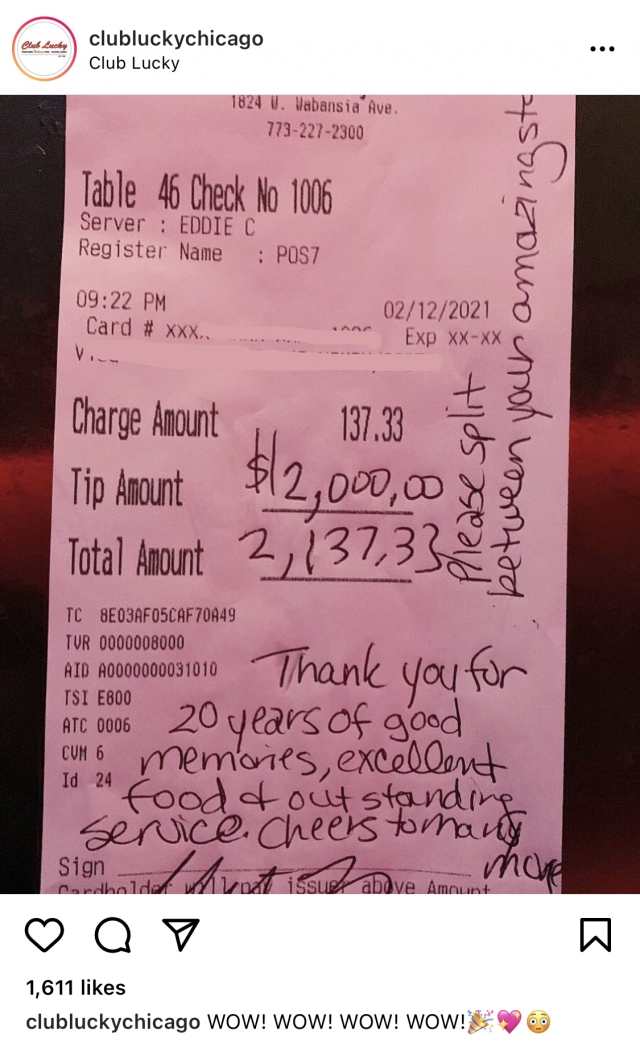 clubluckychicago
Club Lucky
Club Lucky
1824 W. Wabansia Ave.
773-227-2300
Table 46 Check No 1006
Server : EDDIE C
Register Name : POS7
09:22 PM 02/12/2021
Card # xxx Exp xx-xx
Charge Amount 137.33
Tip Amount $2,000,00
Total Amount 2,137,33
Please split
between your amazing st
TC 8E03AF05CAF70A49
TVR 0000008000
AID A0000000031010
TSI E800
ATC 0006
CVM 6
Id 24
Thank you for
20 years of good
memories, excellent
food & outstanding
service. Cheers to many
more
Sign
Cardholder will pay issuer above Amount
1,611 likes
clubluckychicago WOW! WOW! WOW! WOW!🎉💖😳